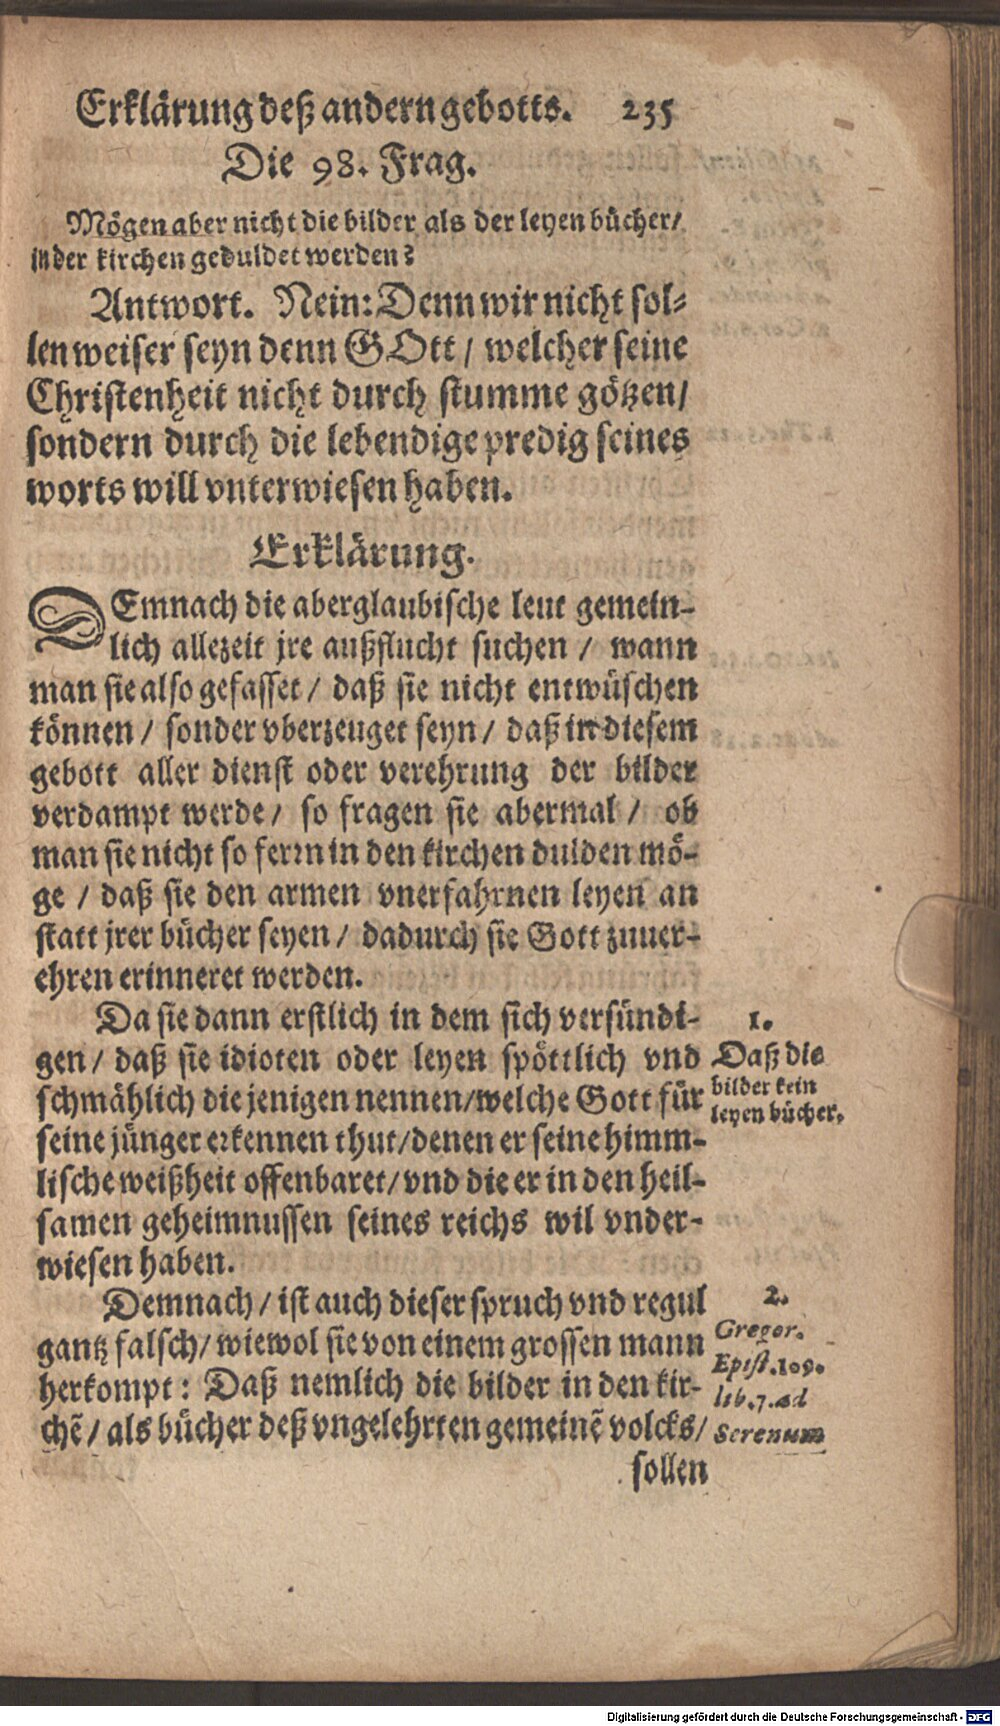 Erklärung deß andern gebotts. 235
Die 98. Frag.
Mögen aber nicht die bilder als der leyen bücher/
in der kirchen geduldet werden?
Antwort. Nein: Denn wir nicht sol-
len weiser seyn denn GOtt / welcher seine
Christenheit nicht durch stumme götzen/
sondern durch die lebendige predig seines
worts will vnterwiesen haben.
Erklärung.
DEmnach die aberglaubische leut gemein-
lich allezeit jre außflucht suchen / wann
man sie also gefasset / daß sie nicht entwüschen
können / sonder vberzeuget seyn / daß in diesem
gebott aller dienst oder verehrung der bilder
verdampt werde / so fragen sie abermal / ob
man sie nicht so ferrn in den kirchen dulden mö-
ge / daß sie den armen vnerfahrnen leyen an
statt jrer bücher seyen / dadurch sie Gott zuuer-
ehren erinneret werden.
Da sie dann erstlich in dem sich versündi-
gen / daß sie idioten oder leyen spöttlich vnd
schmählich die jenigen nennen/welche Gott für
seine jünger erkennen thut/denen er seine himm-
lische weißheit offenbaret/vnd die er in den heil-
samen geheimnussen seines reichs wil vnder-
wiesen haben.
1.
Daß die
bilder kein
leyen bücher.
Demnach / ist auch dieser spruch vnd regul
gantz falsch/ wiewol sie von einem grossen mann
herkompt: Daß nemlich die bilder in den kir-
chē / als bücher deß vngelehrten gemeinē volcks/
2.
Gregor.
Epist. 109.
lib. 7. ad
Serenum
sollen
Digitalisierung gefördert durch die Deutsche Forschungsgemeinschaft - DFG